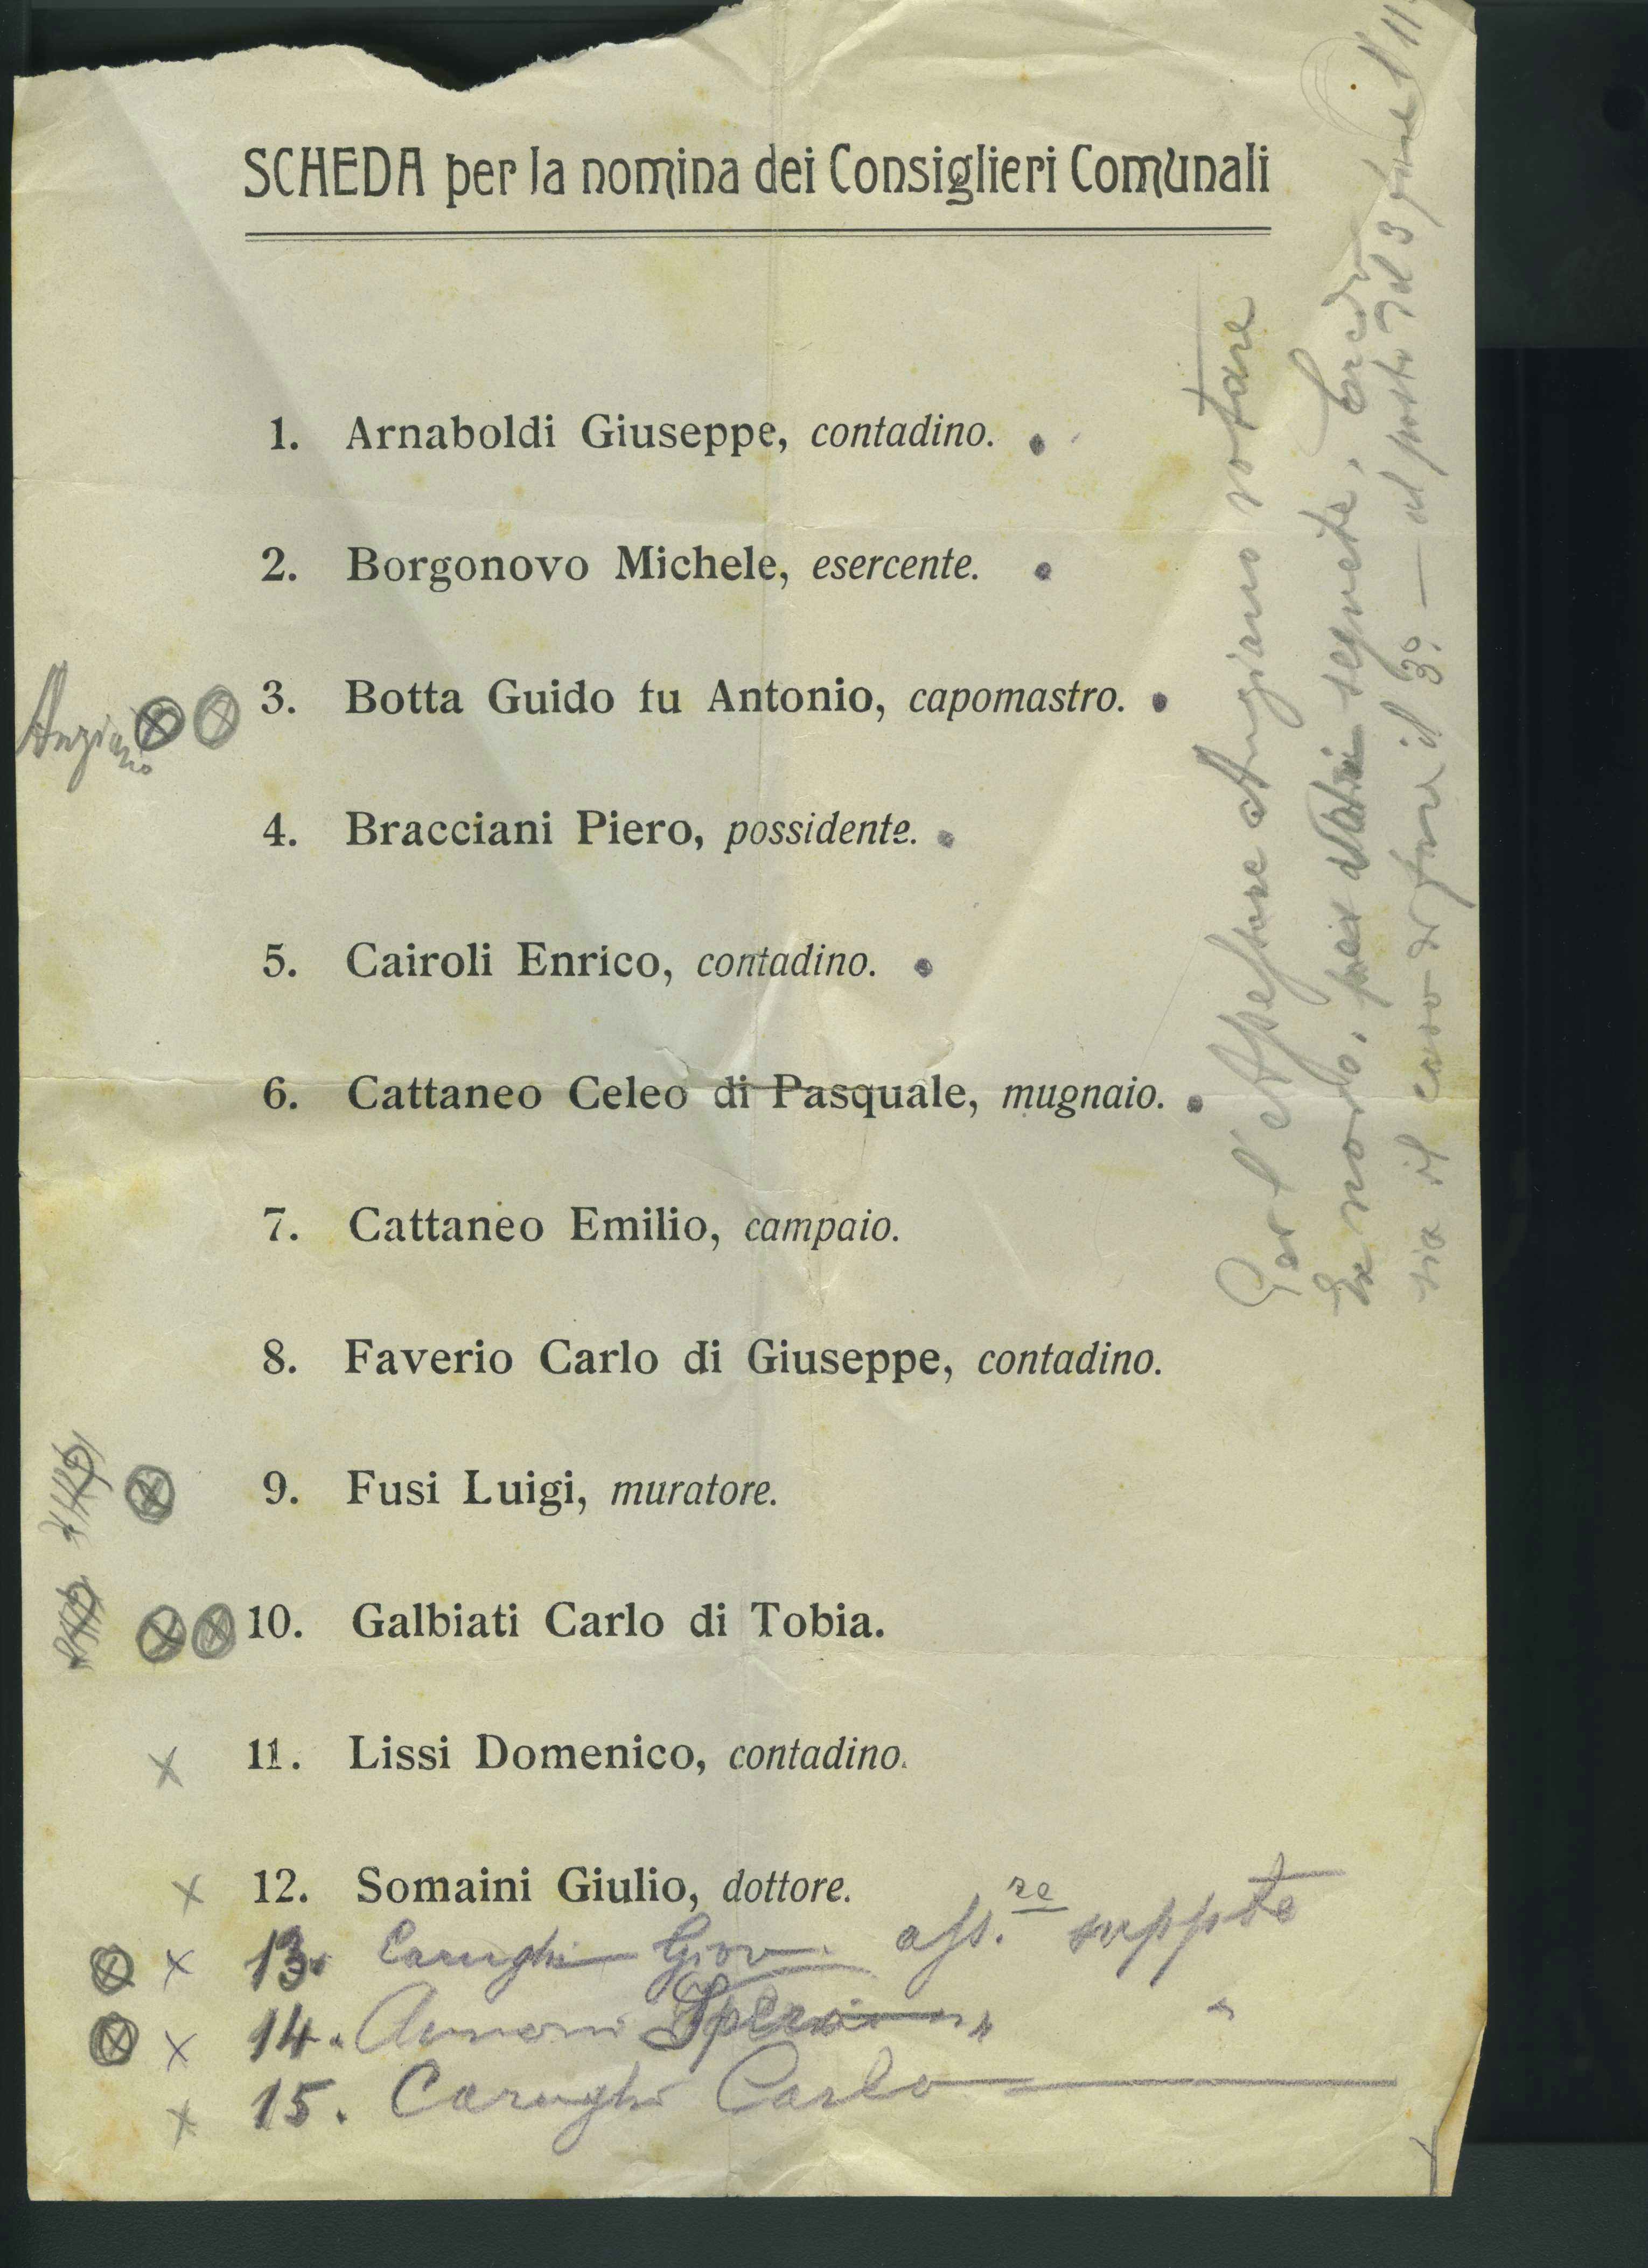 SCHEDA per la nomina dei Consiglieri Comunali
1. Arnaboldi Giuseppe, contadino.
2. Borgonovo Michele, esercente.
3. Botta Guido fu Antonio, capomastro.
Anziano
4. Bracciani Piero, possidente.
5. Cairoli Enrico, contadino.
6. Cattaneo Celeo di Pasquale, mugnaio.
7. Cattaneo Emilio, campaio.
8. Faverio Carlo di Giuseppe, contadino.
9. Fusi Luigi, muratore.
10. Galbiati Carlo di Tobia.
11. Lissi Domenico, contadino.
12. Somaini Giulio, dottore.
13. Carughi Giov. ass.re suppte
14. Annoni " "
15. Carughi Carlo
Per l'Assessore Anziano votare
in modo, segnete, Credo
sia il caso di fare il 3º — al posto del 3 fare l'11